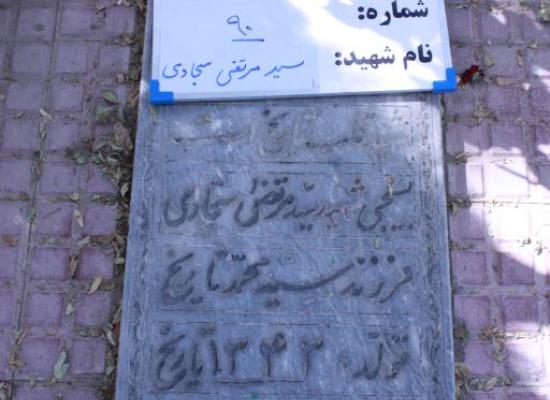 شماره:
۹۰
نام شهید:
سید مرتضی سجادی
شهید قلب تاریخ است
بسیجی شهید سید مرتضی سجادی
فرزند سید محمد تاریخ
تولد ۱۳۴۳ تاریخ